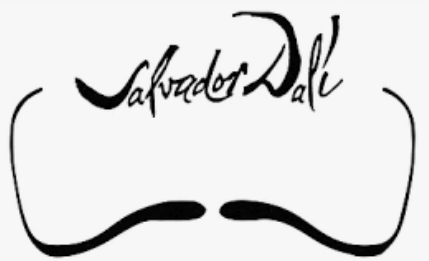 Salvador Dalí